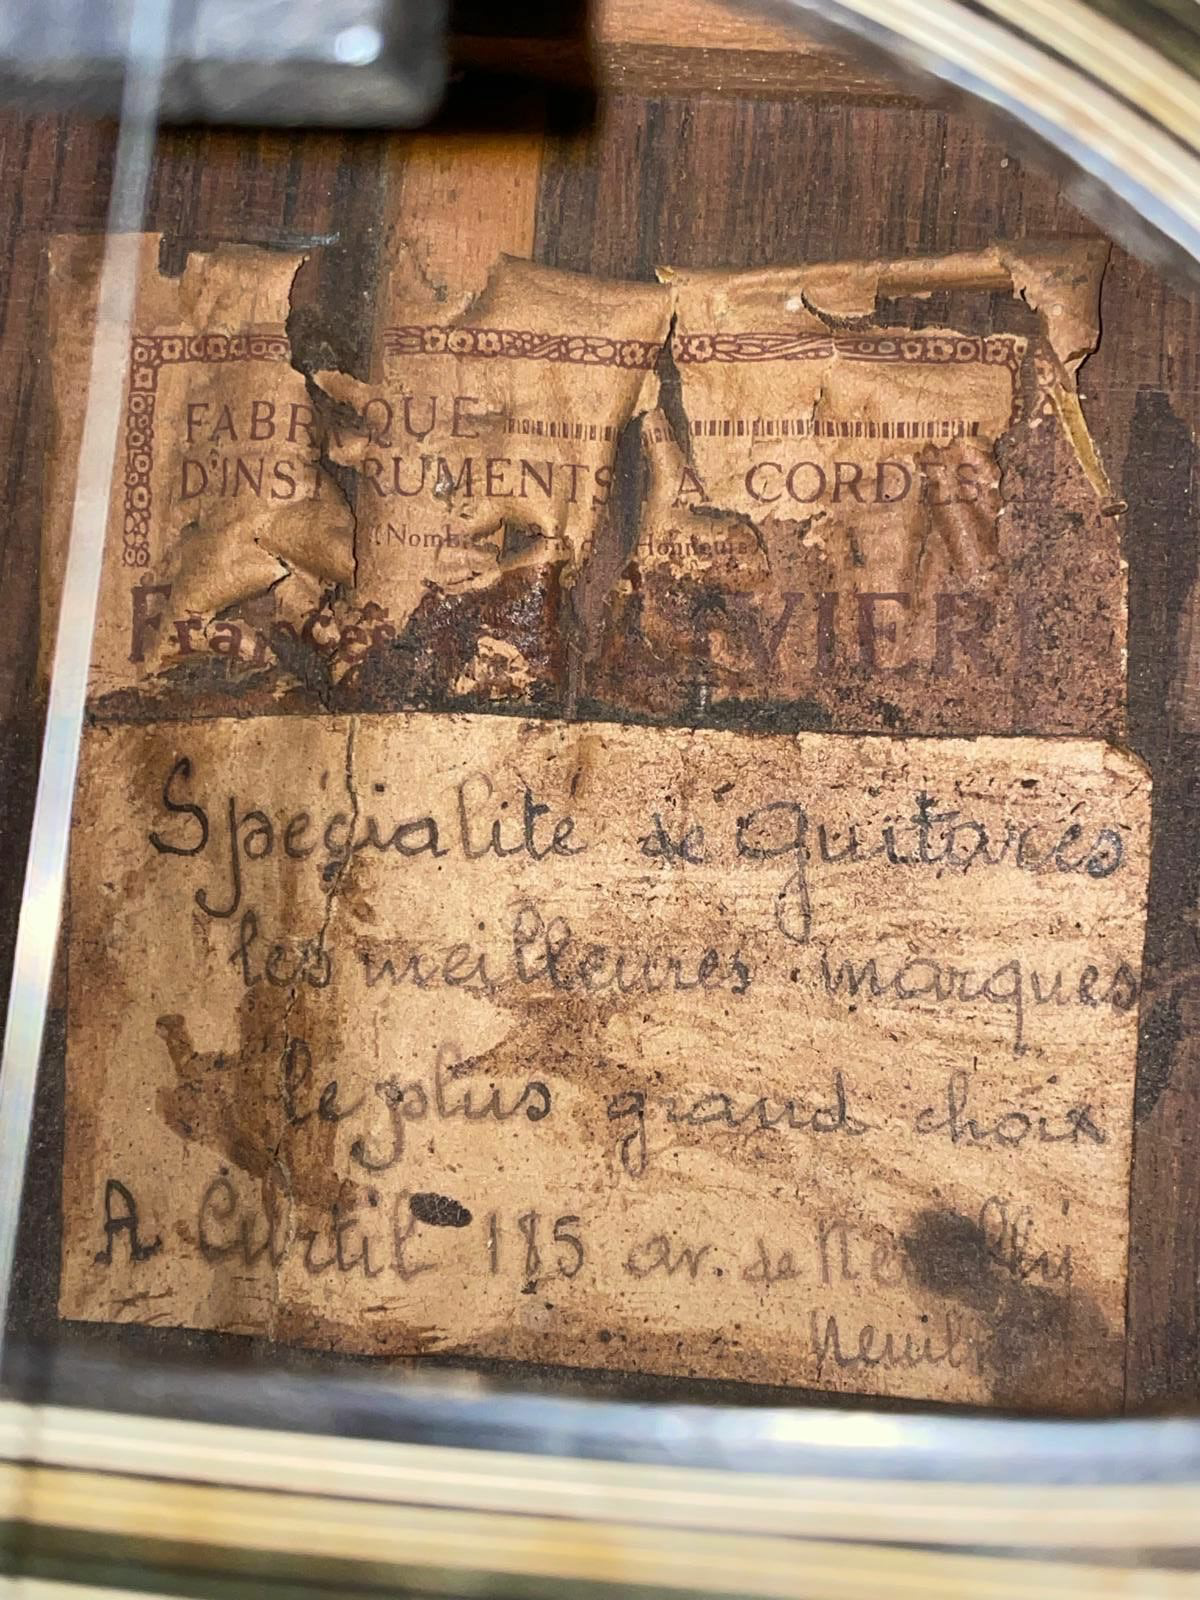 FABRIQUE
D'INSTRUMENTS A CORDES
Honneurs
Spécialité de Guitares
les meilleures marques
le plus grand choix
A Curtil 185 av. de Neuilly
Neuilly